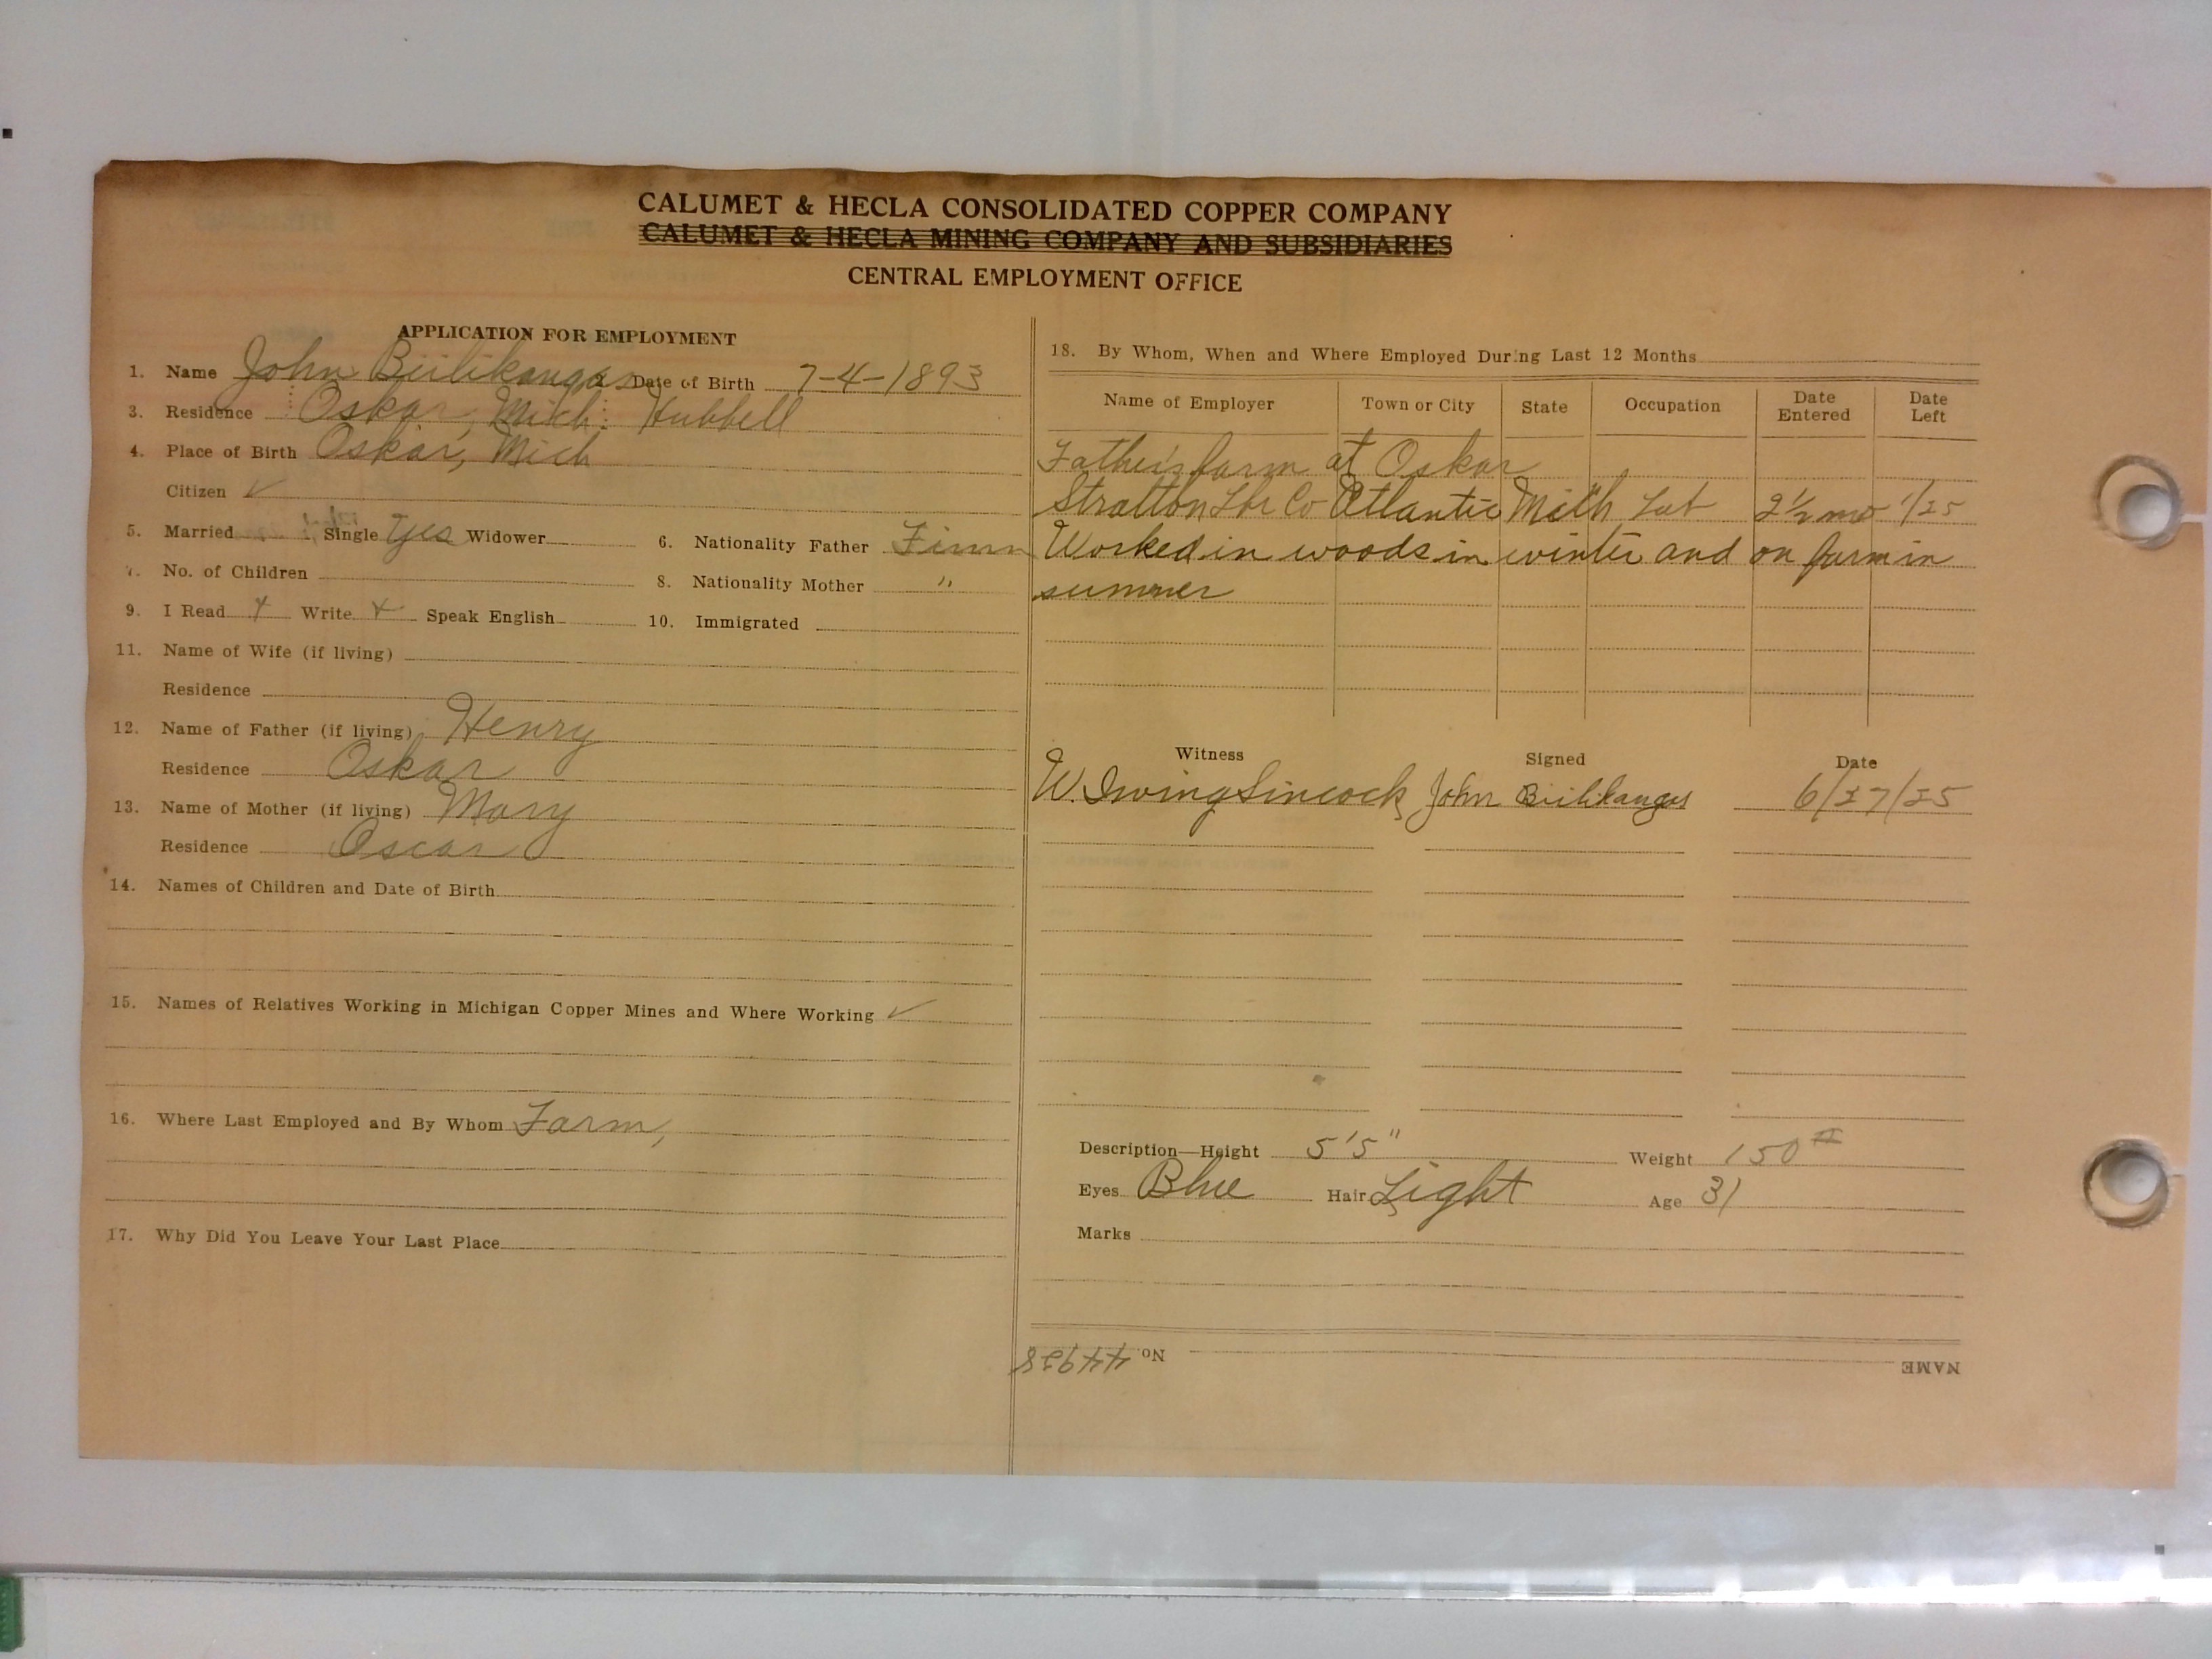 CALUMET & HECLA CONSOLIDATED COPPER COMPANY
CALUMET & HECLA MINING COMPANY AND SUBSIDIARIES
CENTRAL EMPLOYMENT OFFICE
APPLICATION FOR EMPLOYMENT
1. Name John Biilikangas Date of Birth 7-4-1893
3. Residence Oskar, Mich. Hubbell
4. Place of Birth Oskar, Mich
Citizen ✓
5. Married Single Yes Widower 6. Nationality Father Finn
7. No. of Children 8. Nationality Mother "
9. I Read + Write + Speak English 10. Immigrated
11. Name of Wife (if living)
Residence
12. Name of Father (if living) Henry
Residence Oskar
13. Name of Mother (if living) Mary
Residence Oscar
14. Names of Children and Date of Birth
15. Names of Relatives Working in Michigan Copper Mines and Where Working ✓
16. Where Last Employed and By Whom Farm,
17. Why Did You Leave Your Last Place
18. By Whom, When and Where Employed During Last 12 Months
Name of Employer Town or City State Occupation Date Entered Date Left
Father's farm at Oskar
Stratton Lbr Co Atlantic Mich 2 1/2 mo 1/25
Worked in woods in winter and on farm in
summer
Witness Signed Date
W. Irving Sincock John Biilikangas 6/27/25
Description—Height 5'5" Weight 150#
Eyes Blue Hair Light Age 31
Marks
No. 44928 NAME